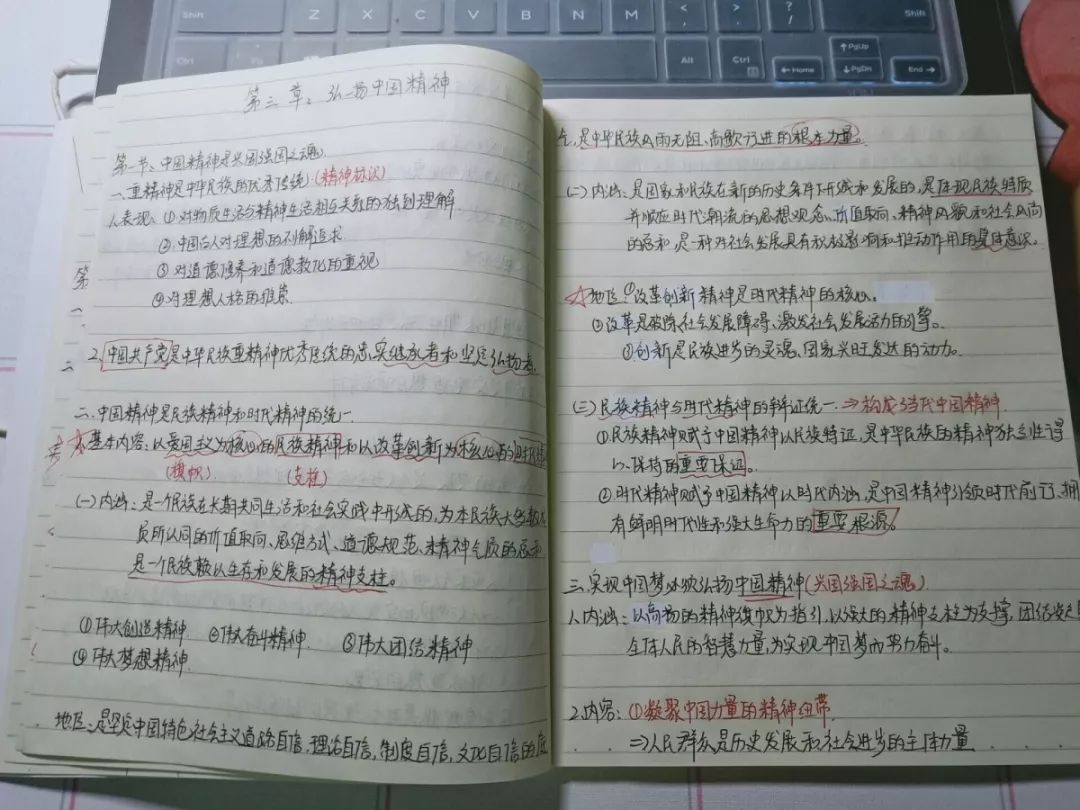 Shift
Z
X
C
V
B
N
M
< ,
> .
? /
Shift
Alt
Ctrl
PgUp
Home
PgDn
End
第三章:弘扬中国精神
第一节、中国精神是兴国强国之魂
一、重精神是中华民族的优秀传统(精神标识)
1.表现:①对物质生活与精神生活相互关系的独到理解
②中国古人对理想的不懈追求
③对道德修养和道德教化的重视
④对理想人格的推崇
2.中国共产党是中华民族重精神优秀传统的忠实继承者和坚定弘扬者.
二、中国精神是民族精神和时代精神的统一
基本内容:以爱国主义为核心的民族精神和以改革创新为核心的时代精
(旗帜) (支柱)
(一)内涵:是一个民族在长期共同生活和社会实践中形成的,为本民族大多数
员所认同的价值取向、思维方式、道德规范、精神气质的总和
是一个民族赖以生存和发展的精神支柱。
①伟大创造精神 ②伟大奋斗精神 ③伟大团结精神
④伟大梦想精神
地位:是坚定中国特色社会主义道路自信,理论自信,制度自信,文化自信的底
气,是中华民族风雨无阻、高歌行进的根本力量。
(二)内涵:是国家和民族在新的历史条件下形成和发展的,是体现民族特质
并顺应时代潮流的思想观念、价值取向、精神风貌和社会风尚
的总和,是一种对社会发展具有积极影响和推动作用的集体意识。
地位:①改革创新精神是时代精神的核心.
②改革是破除社会发展障碍、激发社会发展活力的引擎。
③创新是民族进步的灵魂、国家兴旺发达的动力。
(三)民族精神与时代精神的辩证统一⇒构成了当代中国精神
①民族精神赋予中国精神以民族特征,是中华民族的精神独立性得
以保持的重要保证。
②时代精神赋予中国精神以时代内涵,是中国精神引领时代前行、拥
有鲜明时代性和强大生命力的重要根源。
三.实现中国梦必须弘扬中国精神(兴国强国之魂)
1.内涵:以高扬的精神旗帜为指引,以强大的精神支柱为支撑,团结凝
全体人民的智慧力量,为实现中国梦而努力奋斗。
2.内容:①凝聚中国力量的精神纽带
⇒人民群众是历史发展和社会进步的主体力量